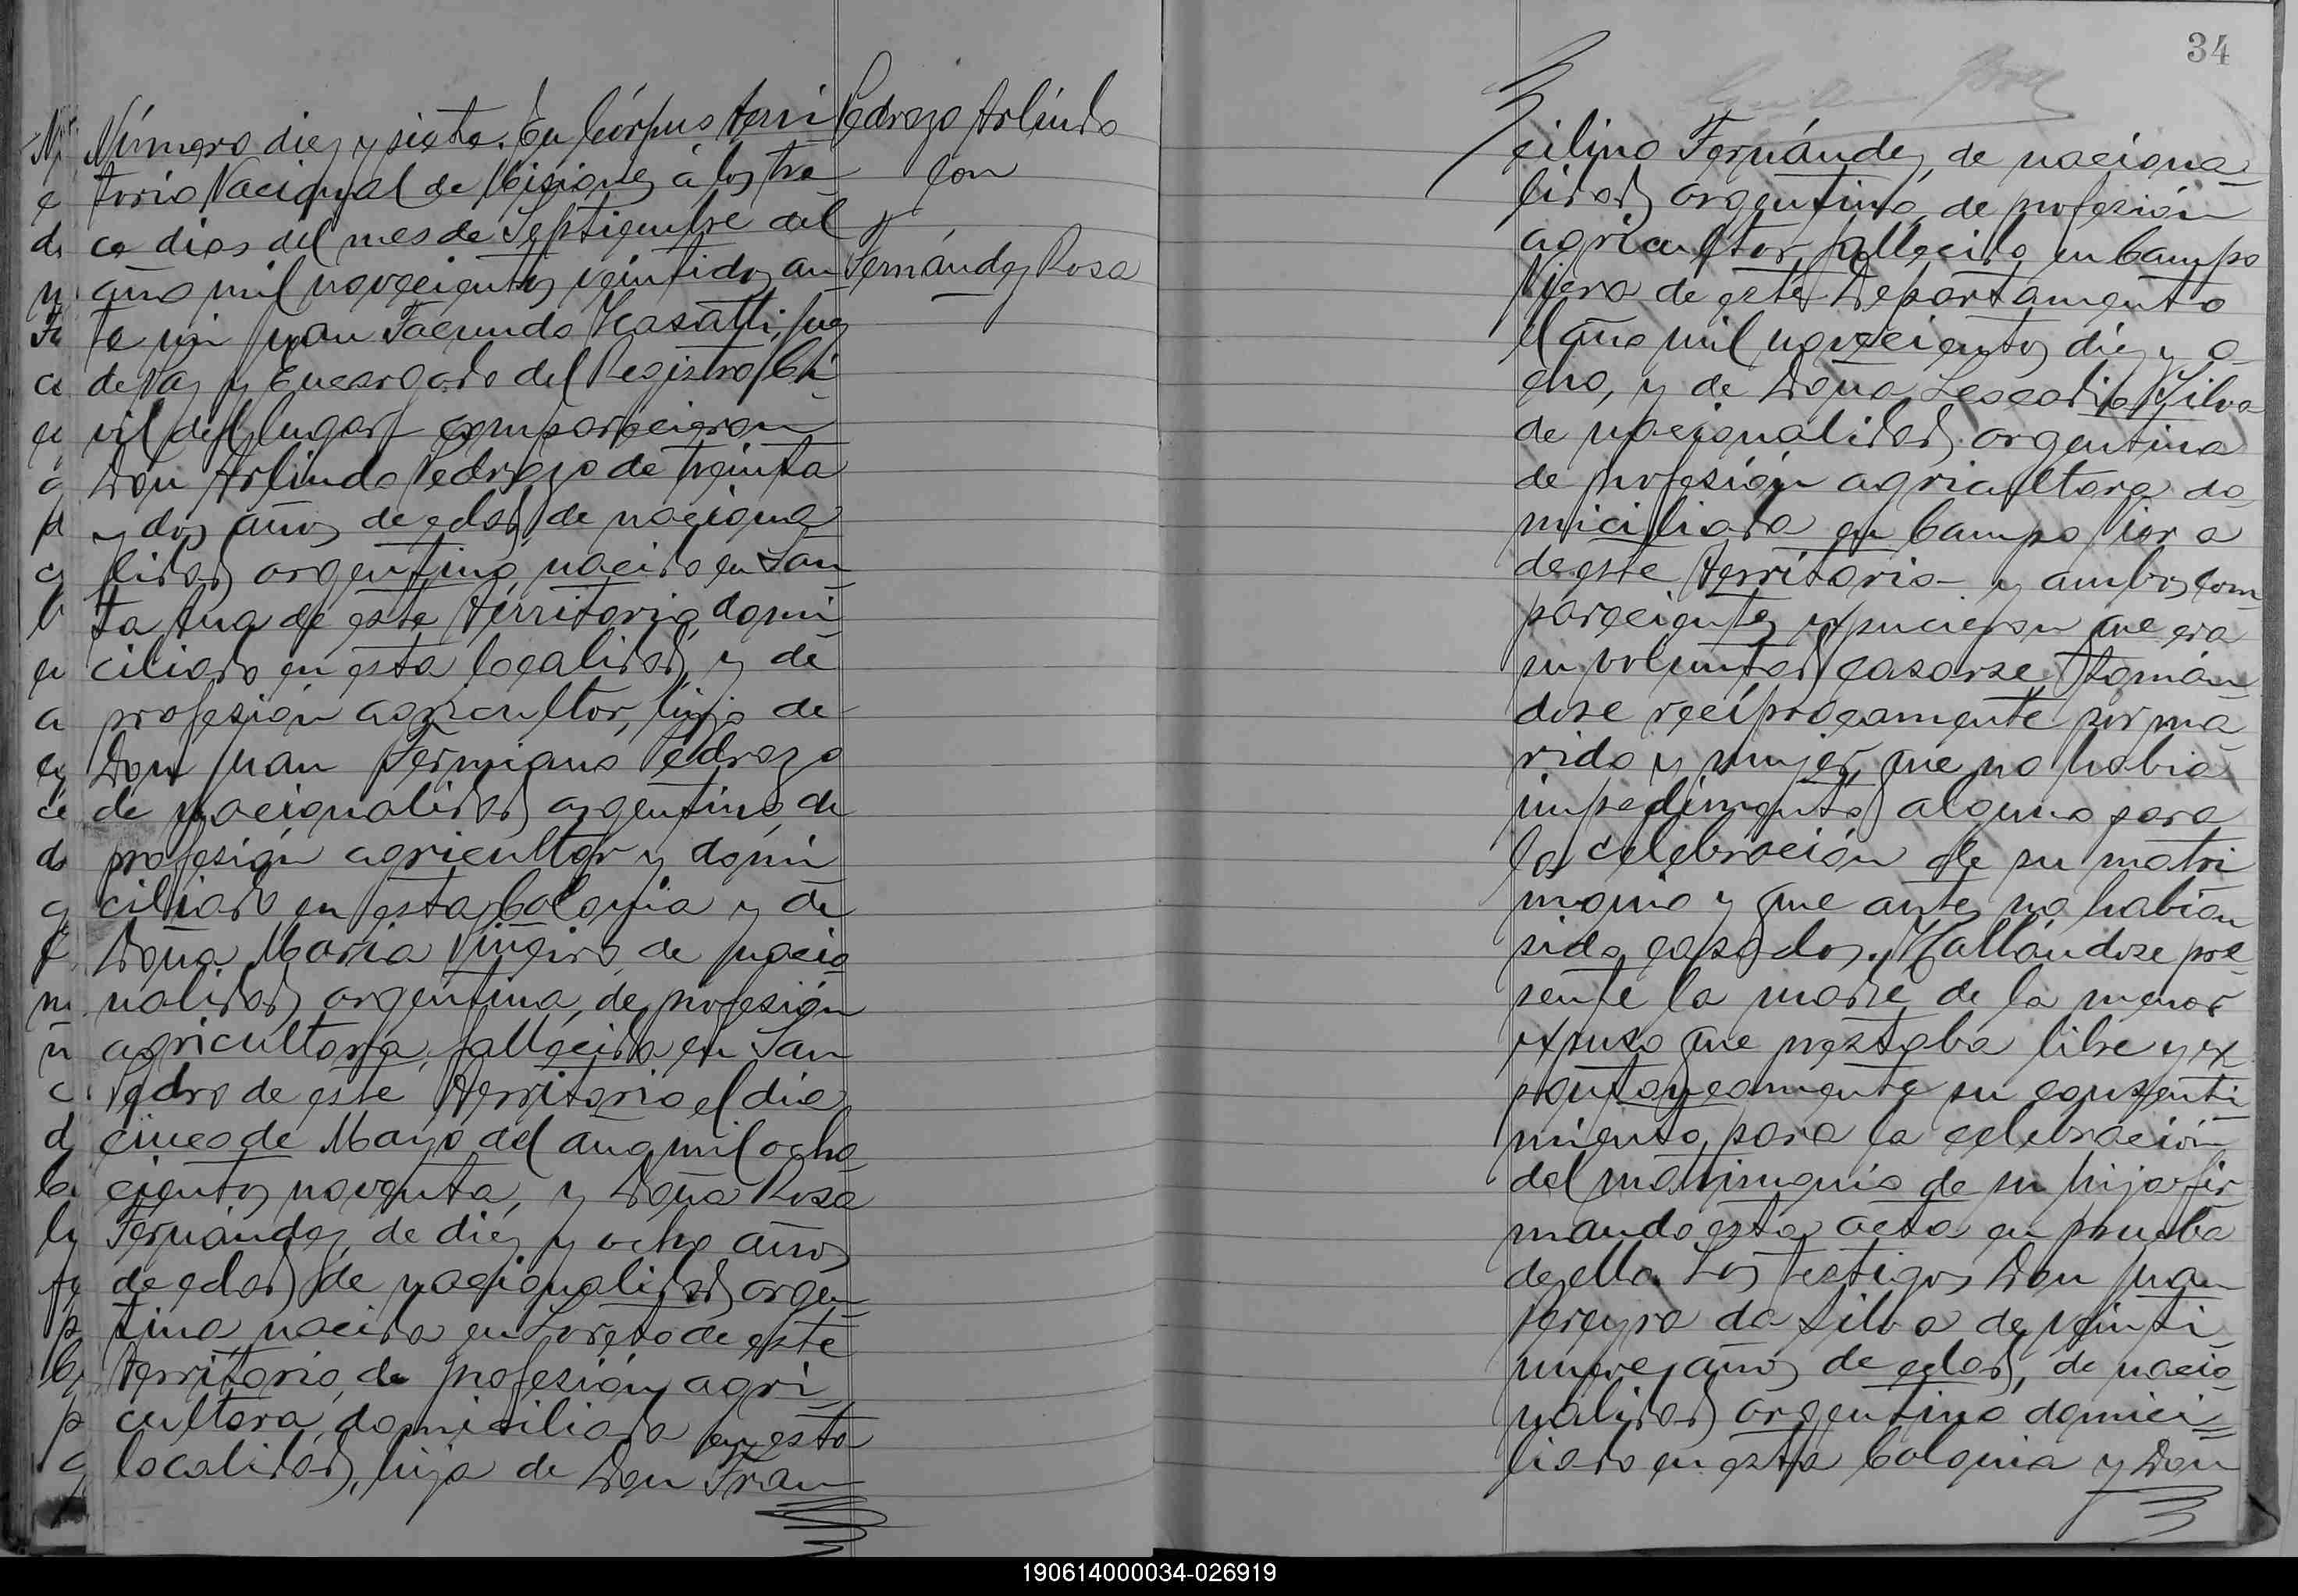 Número diez y siete. En Córpus Terri
torio Nacional de Misiones á los tre-
ce dias del mes de Septiembre del
año mil novecientos veintidos, an
te mi Juan Facundo Casatti, Juez
de Paz y Encargado del Registro Ci-
vil del lugar comparecieron
Don Arlindo Pedrozo de treinta
y dos años de edad, de naciona
lidad argentino, nacido en San-
ta Ana de este Territorio, domi-
ciliado en esta localidad, y de
profesión agricultor, hijo de
Don Juan Pedrozo
de nacionalidad argentino, de
profesión agricultor y domi
ciliado en esta Colonia y de
Doña Maria de nacio
nalidad argentina, de profesión
agricultora, fallecida en San
Pedro de este Territorio el dia
cinco de Mayo del año mil ocho
cientos noventa, y Doña Rosa
Fernández, de diez y ocho años
de edad, de nacionalidad argen-
tina, nacida en Loreto de este
Territorio, de profesión agri
cultora, domiciliada en esta
localidad, hija de Don Fran
Pedrozo Arlindo
con
Fernández Rosa
34
cilino Fernández, de naciona-
lidad argentino, de profesión
agricultor, fallecido en Campo
Viera de este Departamento
el año mil novecientos diez y o-
cho, y de Doña Leocadia Silva
de nacionalidad argentina
de profesión agricultora do
miciliada en Campo Viera
de este Territorio y ambos com
parecientes expucieron que era
su voluntad casarse, tomán-
dose recíprocamente por ma-
rido y mujer, que no habia
impedimento alguno para
la celebración de su matri
monio y que antes no habian
sido casados. Hallándose pre-
sente la madre de la menor
expuso que prestaba libre y ex
pontaneamente su consenti
miento, para la celebración
del matrimonio de su hija fir
mando esta acta en prueba
de ello. Los testigos Don Juan
Pereyra da Silva de veinti
nueve años de edad, de nacio-
nalidad argentino domici=
liado en esta Colonia y Don
190614000034-026919